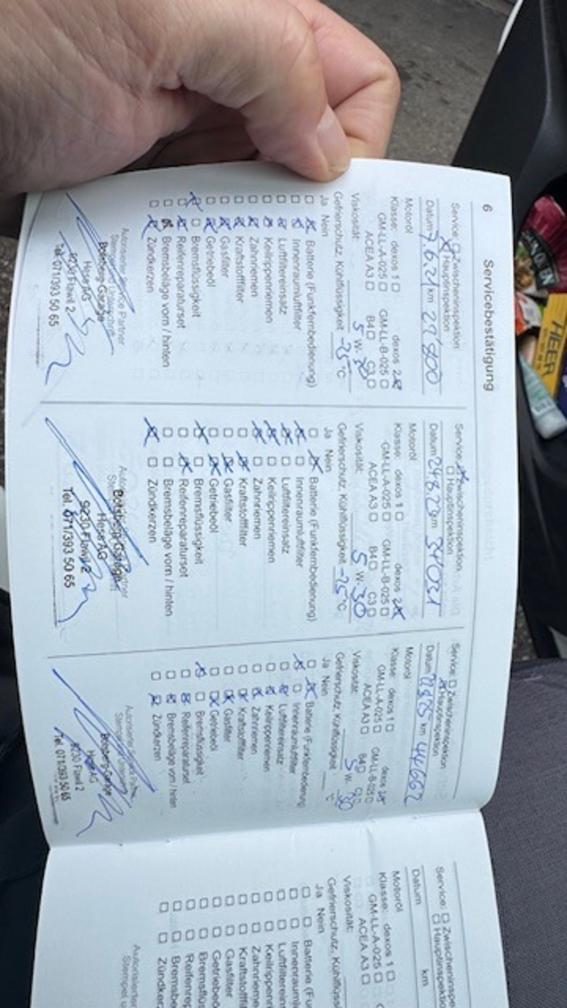 6
Servicebestätigung
Service: Zwischeninspektion
Hauptinspektion
Datum 7.6.21 km 27'800
Motoröl
Klasse: dexos 1 dexos 2
GM-LL-A-025 GM-LL-B-025
ACEA A3 B4 C3
Viskosität: 5 W- 30
Gefrierschutz, Kühlflüssigkeit -25 °C
Ja Nein
Batterie (Funkfernbedienung)
Innenraumluftfilter
Luftfiltereinsatz
Keilrippenriemen
Zahnriemen
Kraftstofffilter
Gasfilter
Getriebeöl
Bremsflüssigkeit
Reifenreparaturset
Bremsbeläge vorn / hinten
Zündkerzen
Autorisierter Service Partner
Hess AG
9230 Flawil 2
Tel. 071/393 50 65
Service: Zwischeninspektion
Hauptinspektion
Datum km 34031
Motoröl
Klasse: dexos 1 dexos 2
GM-LL-A-025 GM-LL-B-025
ACEA A3 B4 C3
Viskosität: 5 W- 30
Gefrierschutz, Kühlflüssigkeit -25 °C
Ja Nein
Batterie (Funkfernbedienung)
Innenraumluftfilter
Luftfiltereinsatz
Keilrippenriemen
Zahnriemen
Kraftstofffilter
Gasfilter
Getriebeöl
Bremsflüssigkeit
Reifenreparaturset
Bremsbeläge vorn / hinten
Zündkerzen
Hess AG
9230 Flawil 2
Tel. 071/393 50 65
Service: Zwischeninspektion
Hauptinspektion
Datum km 44662
Motoröl
Klasse: dexos 1 dexos 2
GM-LL-A-025 GM-LL-B-025
ACEA A3 B4 C3
Viskosität: 5 W- 30
Gefrierschutz, Kühlflüssigkeit °C
Ja Nein
Batterie (Funkfernbedienung)
Innenraumluftfilter
Luftfiltereinsatz
Keilrippenriemen
Zahnriemen
Kraftstofffilter
Gasfilter
Getriebeöl
Bremsflüssigkeit
Reifenreparaturset
Bremsbeläge vorn / hinten
Zündkerzen
Hess AG
9230 Flawil 2
Tel. 071/393 50 65
Service: Zwischenins
Hauptinspektion
Datum km
Motoröl
Klasse: dexos 1
GM-LL-A-025
ACEA A3
Viskosität:
Gefrierschutz, Kühlflüss
Ja Nein
Batterie (Fu
Innenraumlu
Luftfiltereins
Keilrippenrie
Zahnriemen
Kraftstofffilte
Gasfilter
Getriebeöl
Bremsflüss
Reifenrepa
Bremsbelä
Zündkerze
Autorisierter
Stempel u
HEER